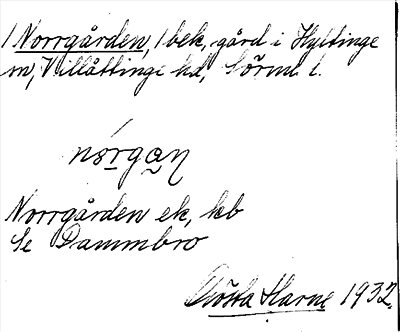 1 Norrgården, 1 bek, gård i Hyltinge
sn, Villåttinge hd, Sörml l.
nórgan
Norrgården ek, kb
Se Dammbro
Gösta Harne 1932.